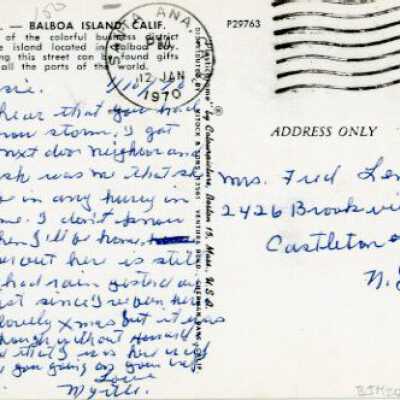 . — BALBOA ISLAND, CALIF.
of the colorful business district
e island located in Balboa Bay.
ng this street can be found gifts
all the parts of the world.
P29763
SANTA ANA, CA
PM
12 JAN
1970
"Plastichrome" by Colourpicture, Boston 15, Mass., U.S.A.
DISTRIBUTED BY MITOCK & SONS, 13561 VENTURA BLVD., SHERMAN OAKS, CALIF.
1/10/70
sie.
hear that you had
now storm. I got
next door neighbor an
she was me that sh
in any hurry in
me. I don't know
hen I'll be home,
er out here is still
had rain yesterday
st since I've been here
lovely Xmas but it was
though without Howard
that I was here
you going as
Love
Myrtle.
ADDRESS ONLY
Mrs. Fred Len
2426 Brookvi
Castleton
N.